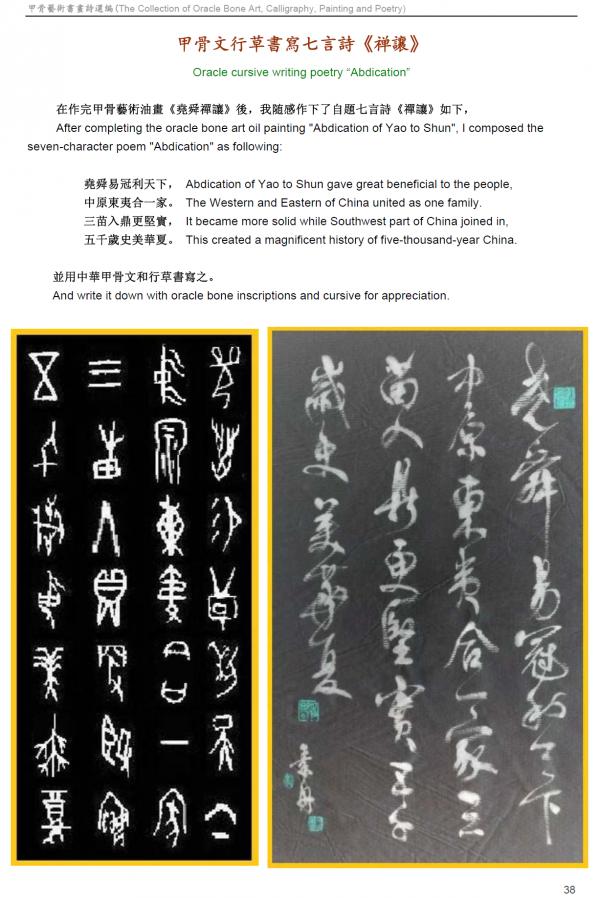 甲骨藝術書畫詩選編(The Collection of Oracle Bone Art, Calligraphy, Painting and Poetry)
甲骨文行草書寫七言詩《禅讓》
Oracle cursive writing poetry “Abdication”
在作完甲骨藝術油畫《堯舜禪讓》後，我隨感作下了自題七言詩《禪讓》如下，
After completing the oracle bone art oil painting "Abdication of Yao to Shun", I composed the
seven-character poem "Abdication" as following:
堯舜易冠利天下， Abdication of Yao to Shun gave great beneficial to the people,
中原東夷合一家。 The Western and Eastern of China united as one family.
三苗入鼎更堅實， It became more solid while Southwest part of China joined in,
五千歲史美華夏。 This created a magnificent history of five-thousand-year China.
並用中華甲骨文和行草書寫之。
And write it down with oracle bone inscriptions and cursive for appreciation.
堯舜易冠利天下
中原東夷合一家
三苗入鼎更堅實
五千歲史美華夏
堯舜易冠利天下
中原東夷合一家三
苗入鼎更堅實五千
歲史美華夏
38